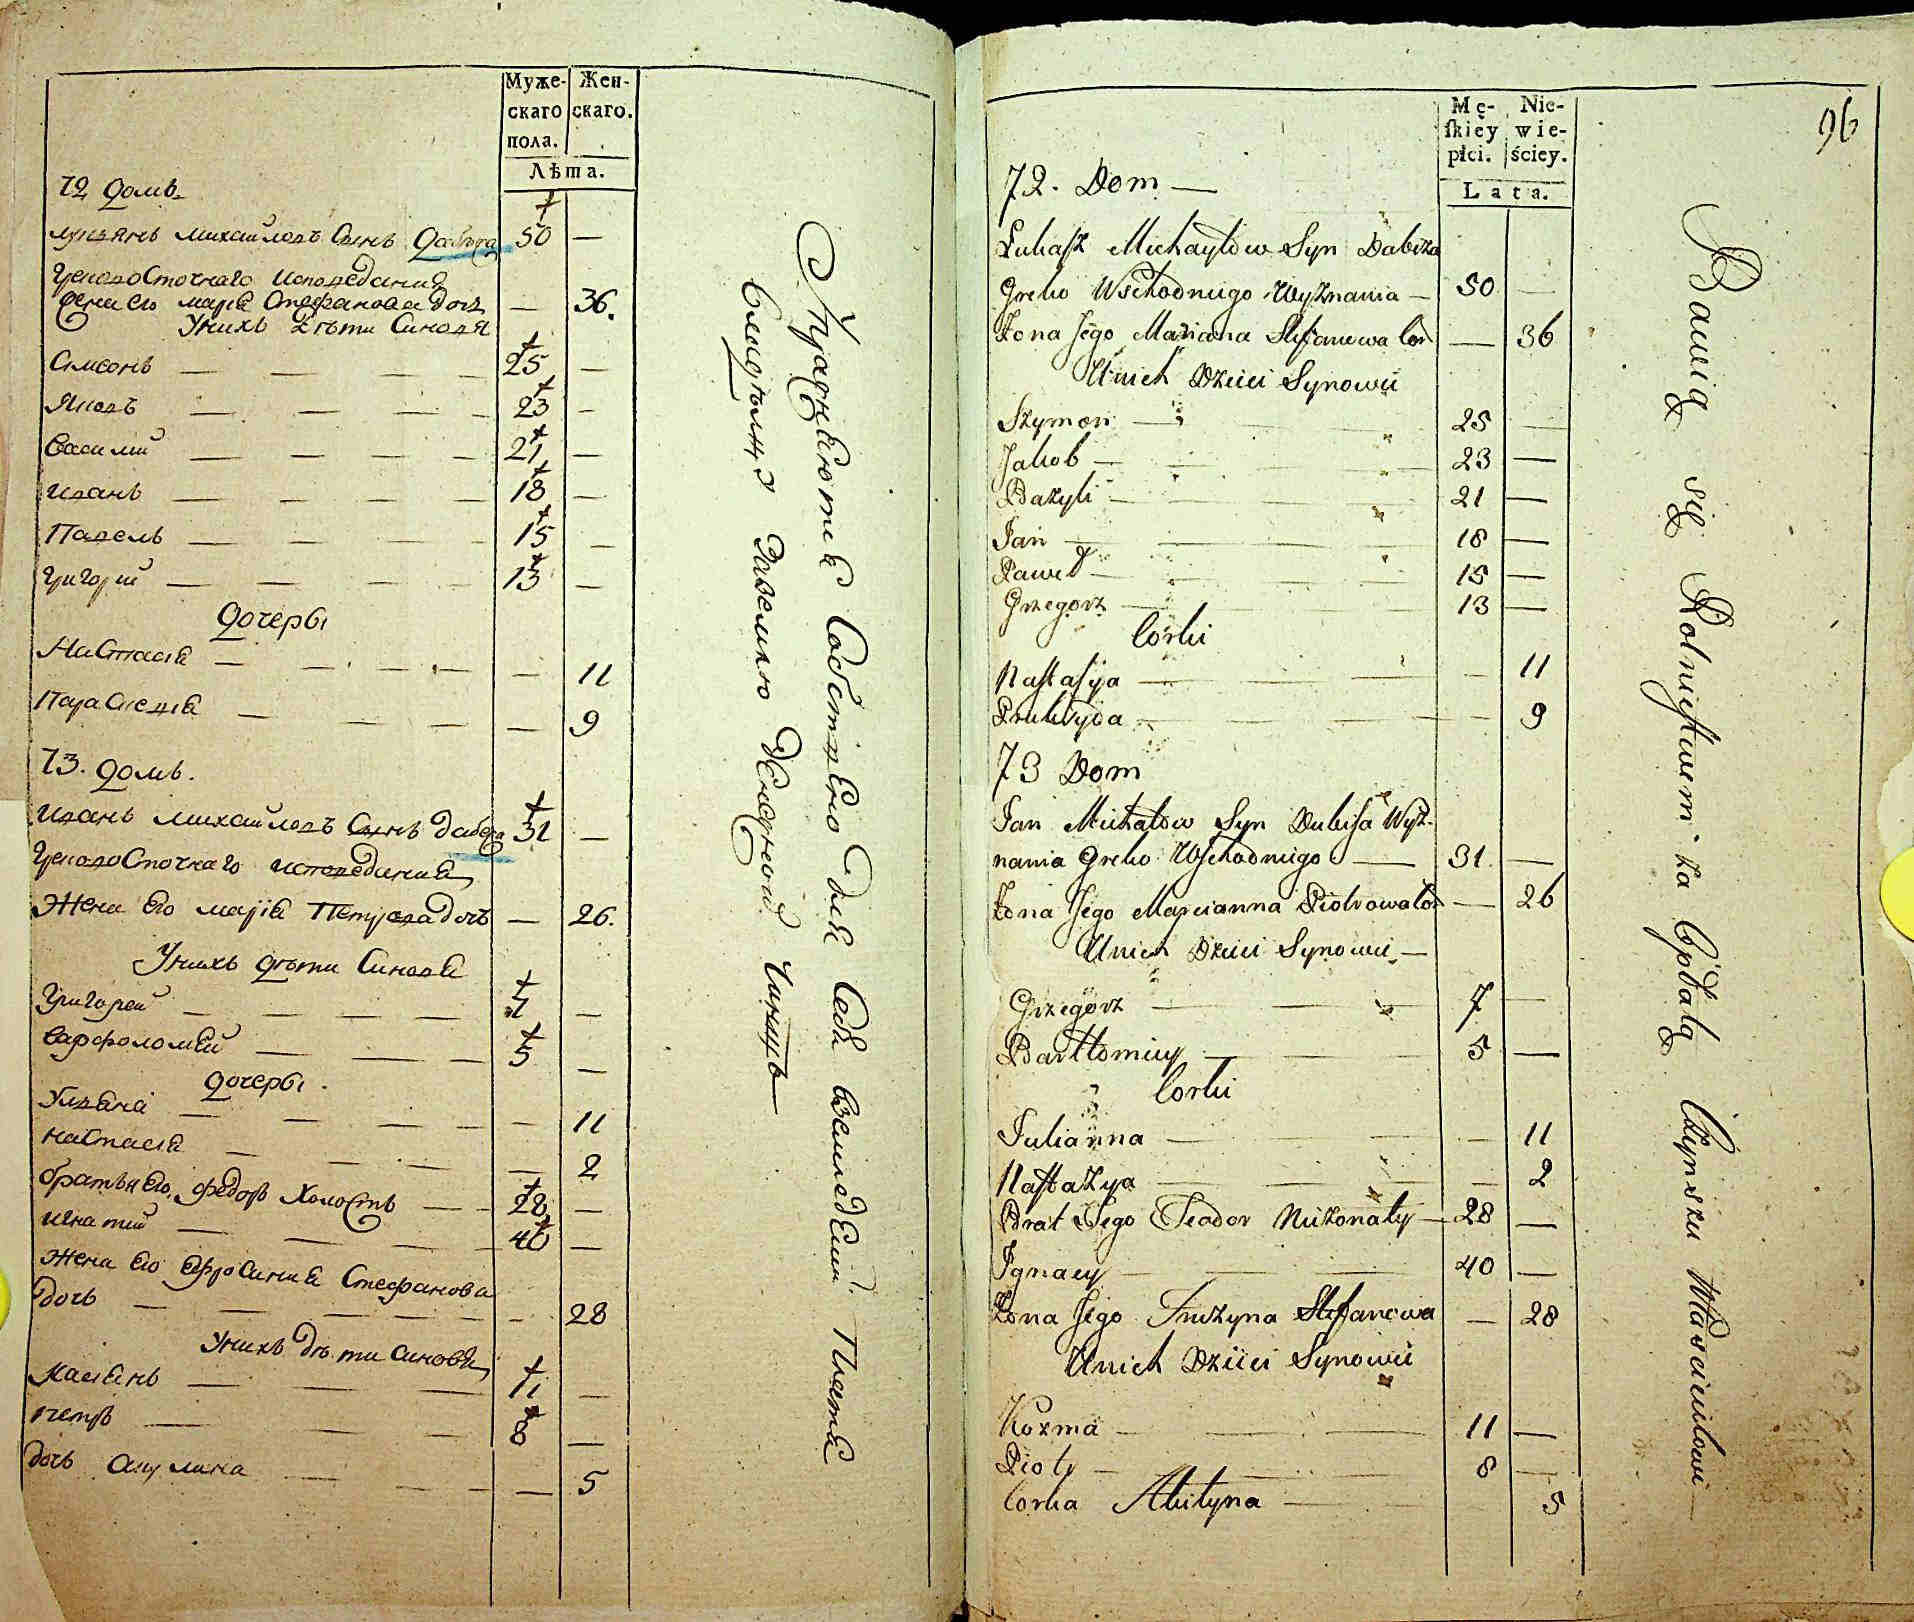 Муже-
скаго
пола.
Жен-
скаго.
Лѣта.
72 домъ
лукянь михайловъ Сынъ Дабижа 50 —
грекоВосточнаго исповедания
жена его марiя Стефанова дочь — 36.
У нихъ дѣти Синовя
Симеонъ — — — — 25 —
Яковъ — — — — 23 —
василий — — — — 21 —
иванъ — — — — 18 —
Павелъ — — — — 15 —
григорий — — — — 13 —
дочеры
Настасiя — — — — — 11
Парасковiя — — — — 9
73. домъ.
иванъ михайловъ Сынъ дабижа 31 —
грекоВосточнаго исповедания
Жена его марiя Петрова дочь — 26.
У нихъ дѣти Синовя
Григорей — — — — 7 —
варфоломей — — — 5 —
дочеры.
Уляна — — — — — 11
настасiя — — — — — 2
братъ его федоръ холостъ — — 28 —
игнатий — — — — 40 —
жена его ефросиния Стефанова
дочь — — — — — 28
У нихъ дѣти синовя
касянъ — — — — 11 —
петръ — — — 8 —
дочь акулина — — — — 5
Упражняются
собственно для себя
землею
чиншъ
96
Mę-
skiey
płci.
Nie-
wie-
ściey.
Lata.
72. Dom —
Łukasz Michayłow Syn Dabiża
Greko Wschodniego Wyznania — 50 —
Żona Jego Marianna Stefanowa Cor — 36
U nich Dzieci Synowie
Szymon — 25 —
Jakob — 23 —
Bazyli — 21 —
Jan — 18 —
Paweł — 15 —
Grzegorz — 13 —
Corki
Nastasya — — 11
Pruksyda — — 9
73 Dom
Jan Michałow Syn Dubisa Wyz-
nania Greko Wschodniego — 31. —
Żona Jego Maryianna Piotrowa Cor — 26
U nich Dzieci Synowie —
Grzegorz — 7 —
Bartłomiey — 5 —
Corki
Julianna — — 11
Nastazya — — 2
Brat Jego Teodor Nieżonaty — 28 —
Ignacy — 40 —
Żona Jego Fruzyna Stefanowa — 28
U nich Dzieci Synowie
Kozma — 11 —
Piotr — 8 —
Corka Akilyna — 5
Bawią się Rolnictwem za Opłatą Czynszu Właścicielowi —